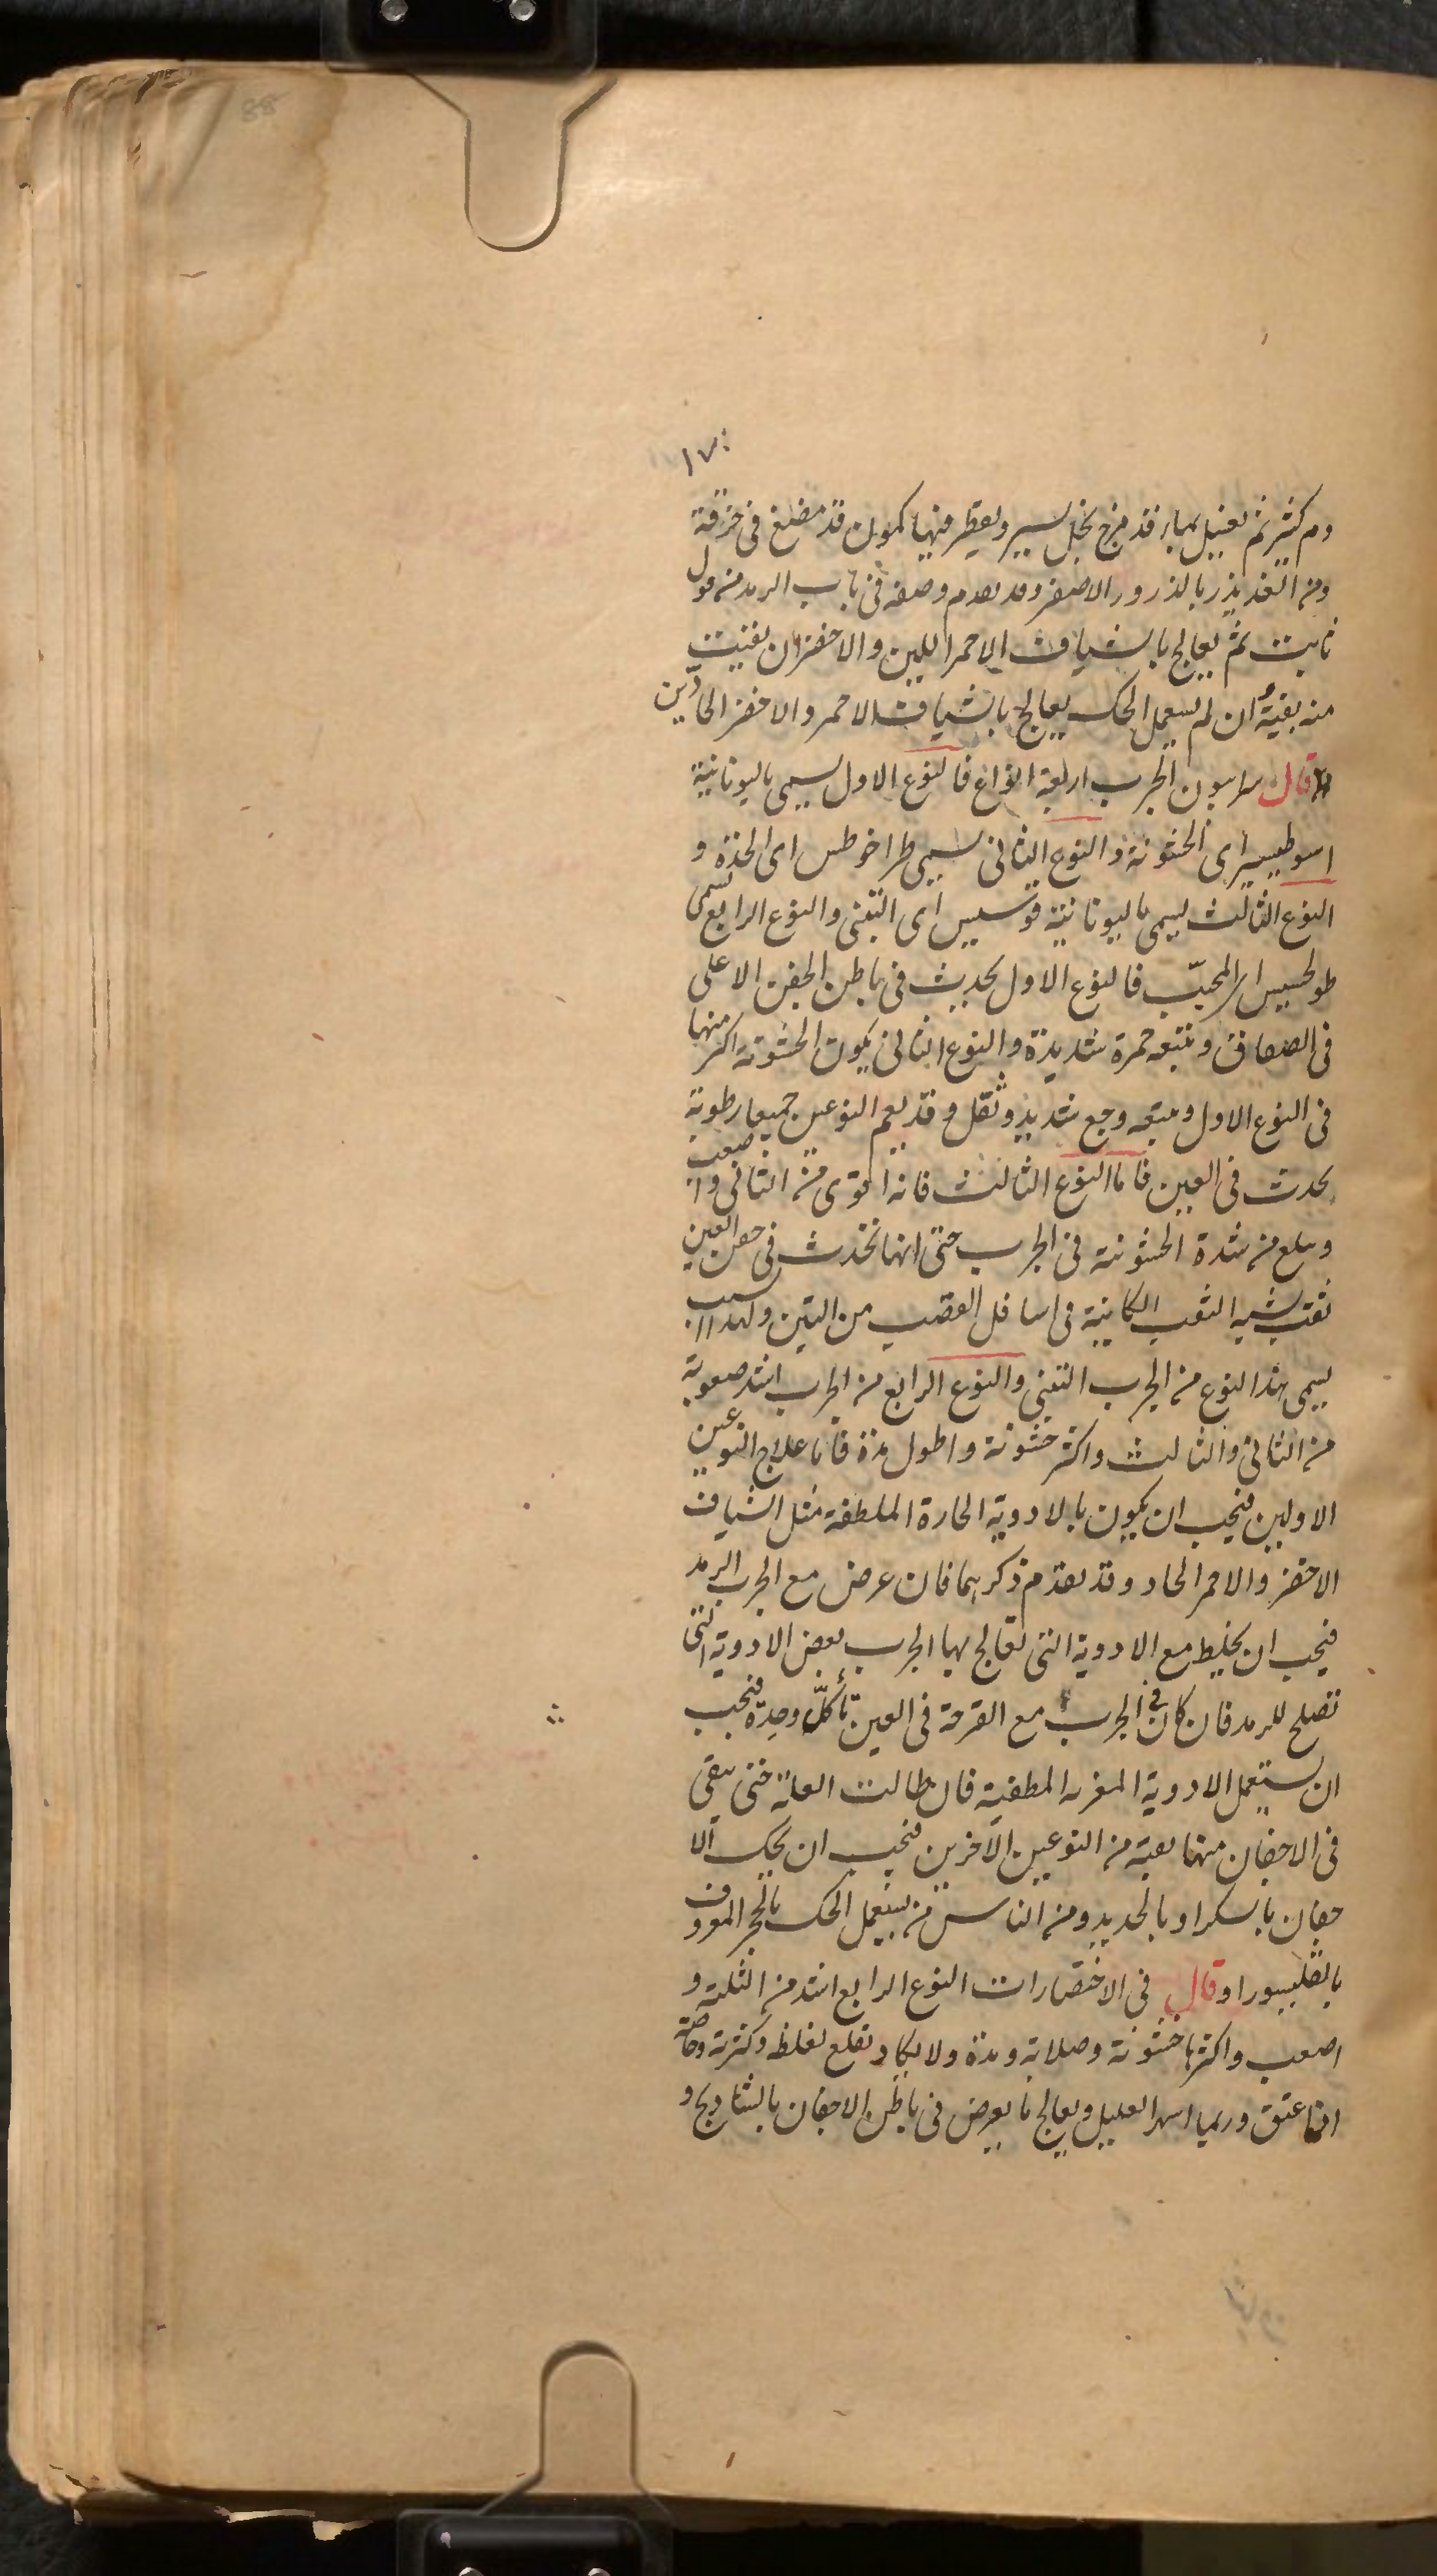 ١٧٠
دم كثير ثم يغسل بماء قد مزج بخل يسير ويقطر فيها كمون قد مضغ في خرقة
ومن الغد يذر بالذرور الاصفر وقد تقدم وصفه في باب الرمد من قول
ثابت ثم يعالج بالشياف الاحمر اللين والاخضر ان بقيت
منه بقية ان لم يستعمل الحك يعالج بالشياف الاحمر والاخضر الحادّين
قال سرابيون الجرب اربعة انواع فالنوع الاول يسمى باليونانية
اى الخشونة والنوع الثاني يسمى طراخوطس اى الحدة و
النوع الثالث يسمى باليونانية قوسيس اى التينى والنوع الرابع يسمى
طولحسيس اى المحبّب فالنوع الاول يحدث فى باطن الجفن الاعلى
فى الصفاق وتتبعه حمرة شديدة والنوع الثانى يكون الخشونة اكثر منها
فى النوع الاول ويتبعه وجع شديد وثقل وقد يعم النوعين جميعا رطوبة
يحدث فى العين فاما النوع الثالث فانه اقوى من الثانى واصعب
ويبلغ من شدة الخشونة فى الجرب حتى انها تحدث فى جفن العين
ثقب شبيه الثقب الكاينة فى اسافل القصب من التين ولهذا السبب
يسمى هذا النوع من الجرب التينى والنوع الرابع من الجرب اشد صعوبة
من الثانى والثالث واكثر خشونة واطول مدة فاما علاج النوعين
الاولين فيجب ان يكون بالادوية الحارة الملطفة مثل الشياف
الاخضر والاحمر الحاد وقد تقدم ذكرهما فان عرض مع الجرب الرمد
فيجب ان يخلط مع الادوية التى تعالج بها الجرب بعض الادوية التى
تصلح للرمد فان كان فى الجرب مع القرحة فى العين تأكلّ وحدة فيجب
ان يستعمل الادوية المغرية المطفية فان طالت العلة حتى يبقى
فى الاجفان منها بقية من النوعين الآخرين فيجب ان يحك الا
جفان بالسكر او بالحديد ومن الناس من يستعمل الحك بالحجر المعروف
وقال فى الاختصارات النوع الرابع اشد من الثلثة و
اصعب واكثرها خشونة وصلابة ومدة ولا يكاد تقلع لغلظه وكثرته وخاصة
اذا عتق وربما اسهر العليل ويعالج ما يعرض فى باطن الاجفان بالشادنج و